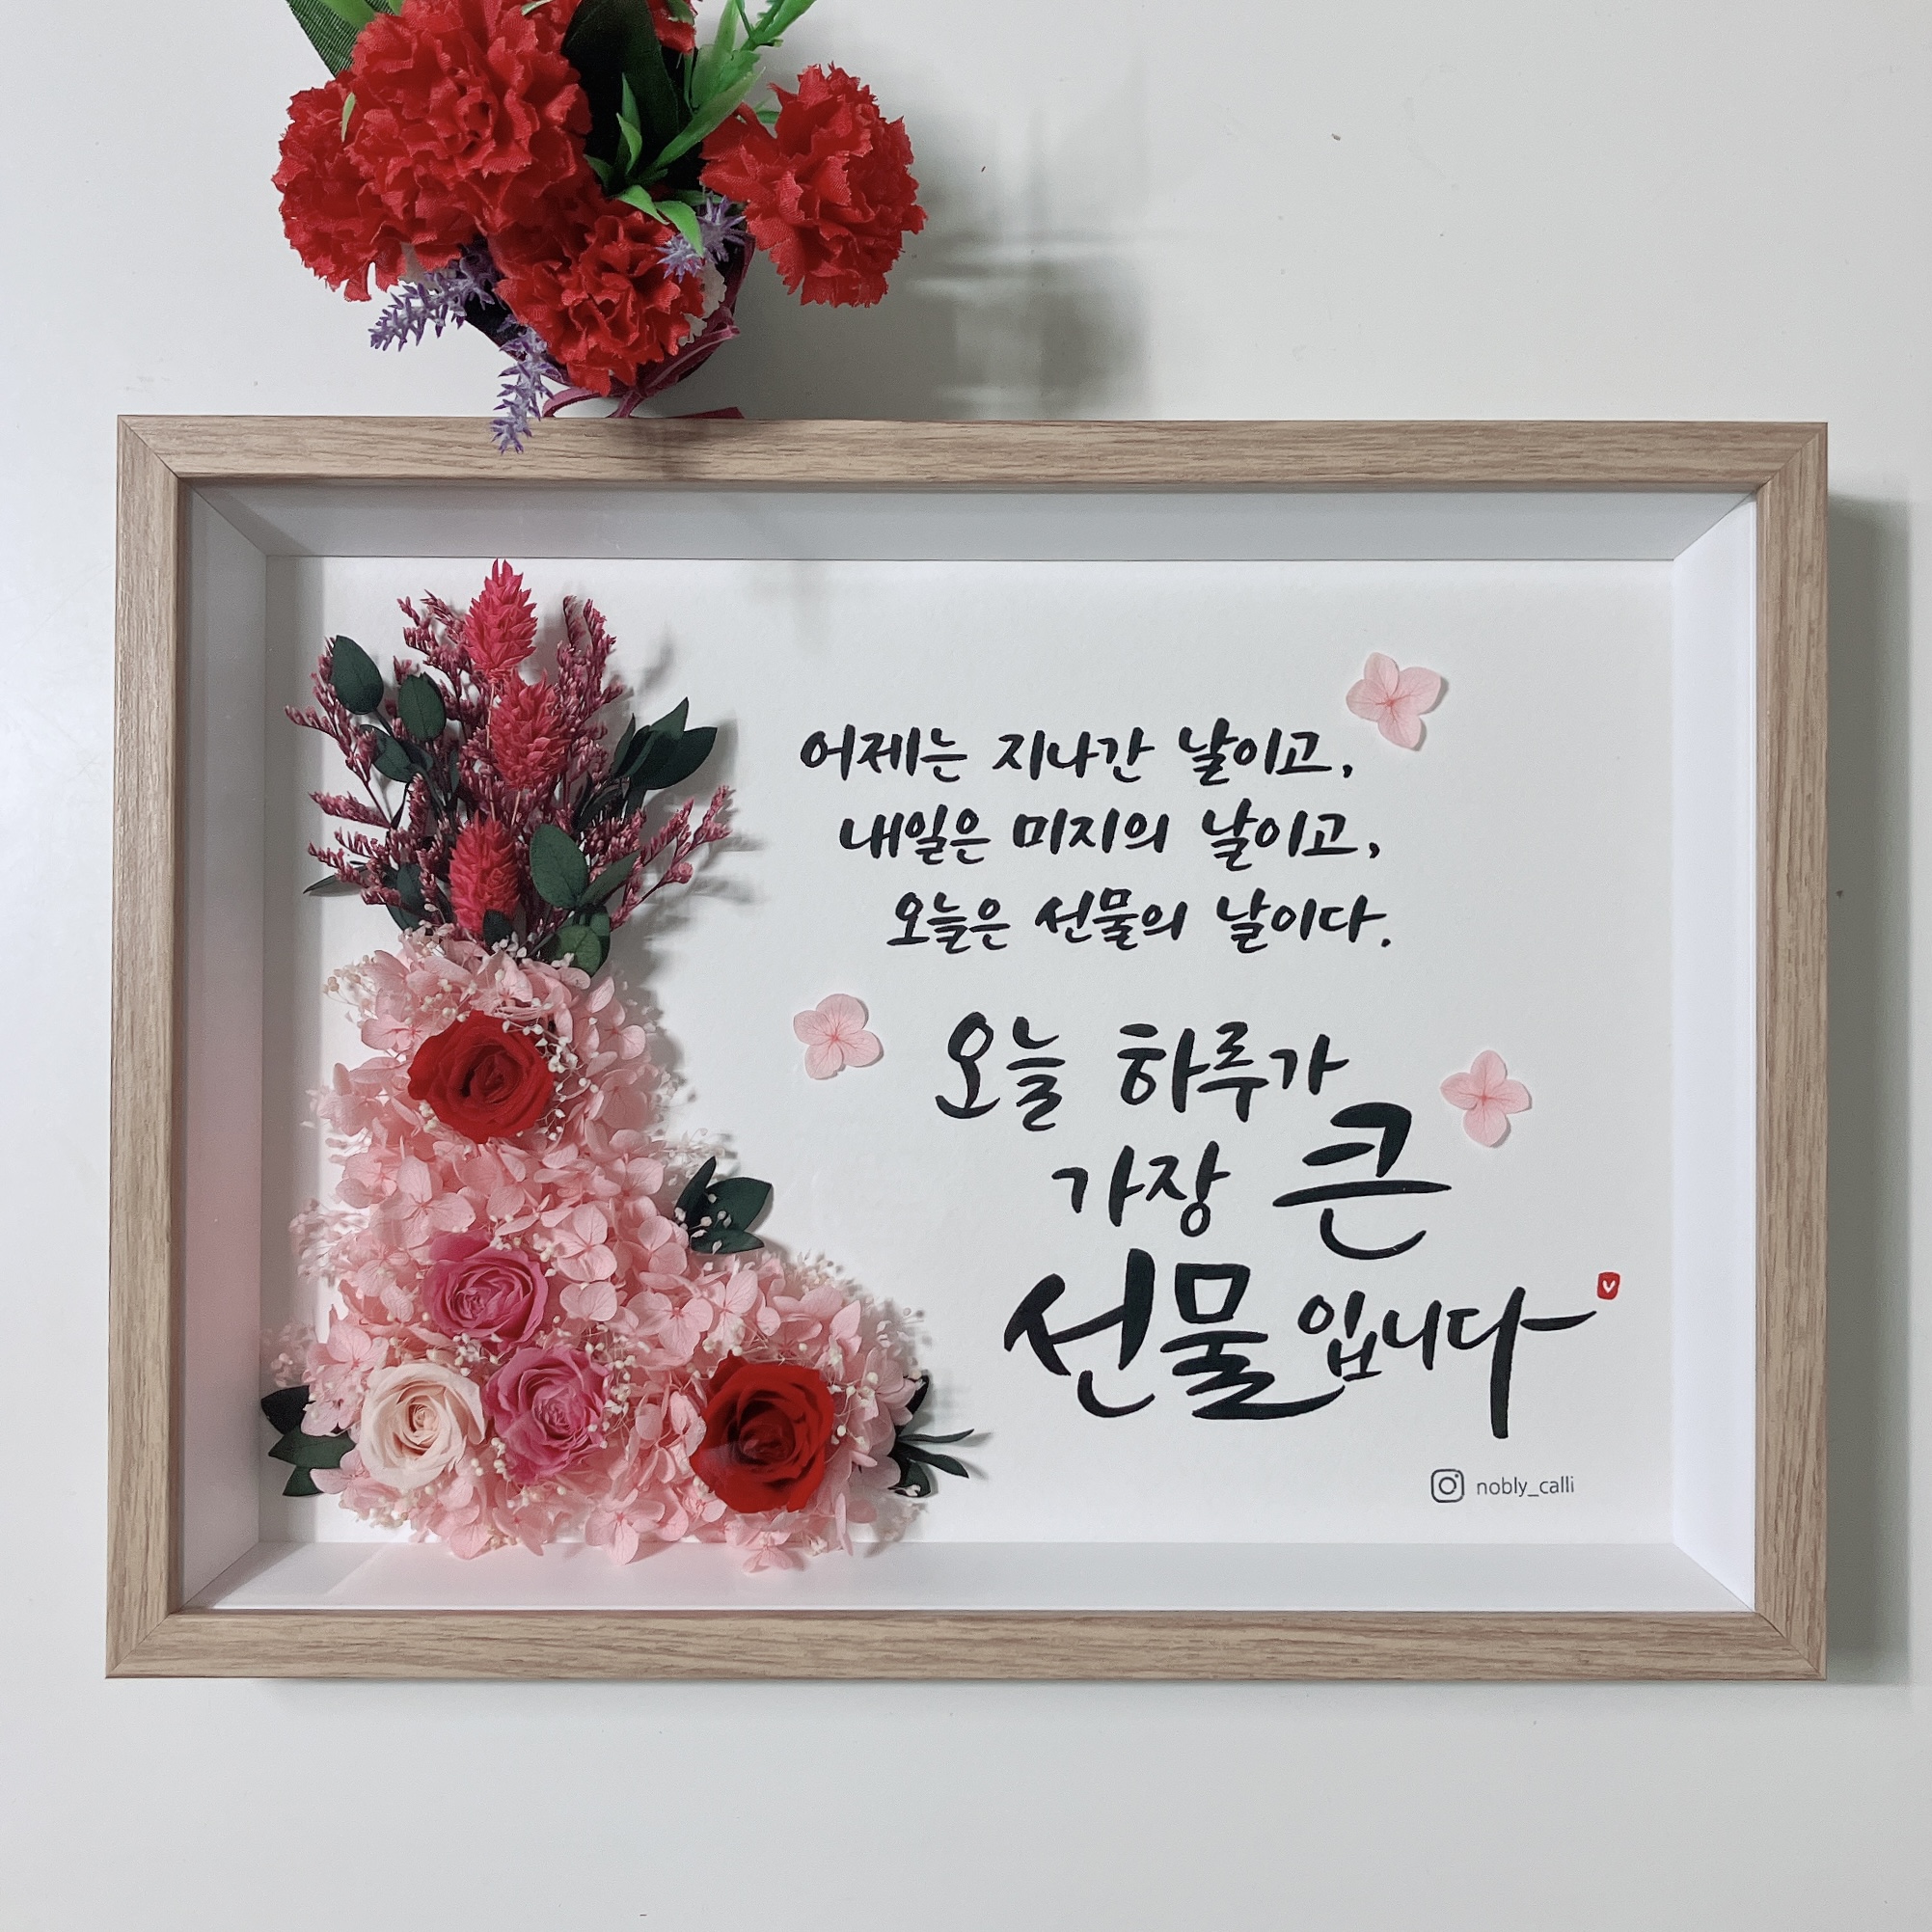 어제는 지나간 날이고,
내일은 미지의 날이고,
오늘은 선물의 날이다.
오늘 하루가
가장 큰
선물입니다
nobly_calli